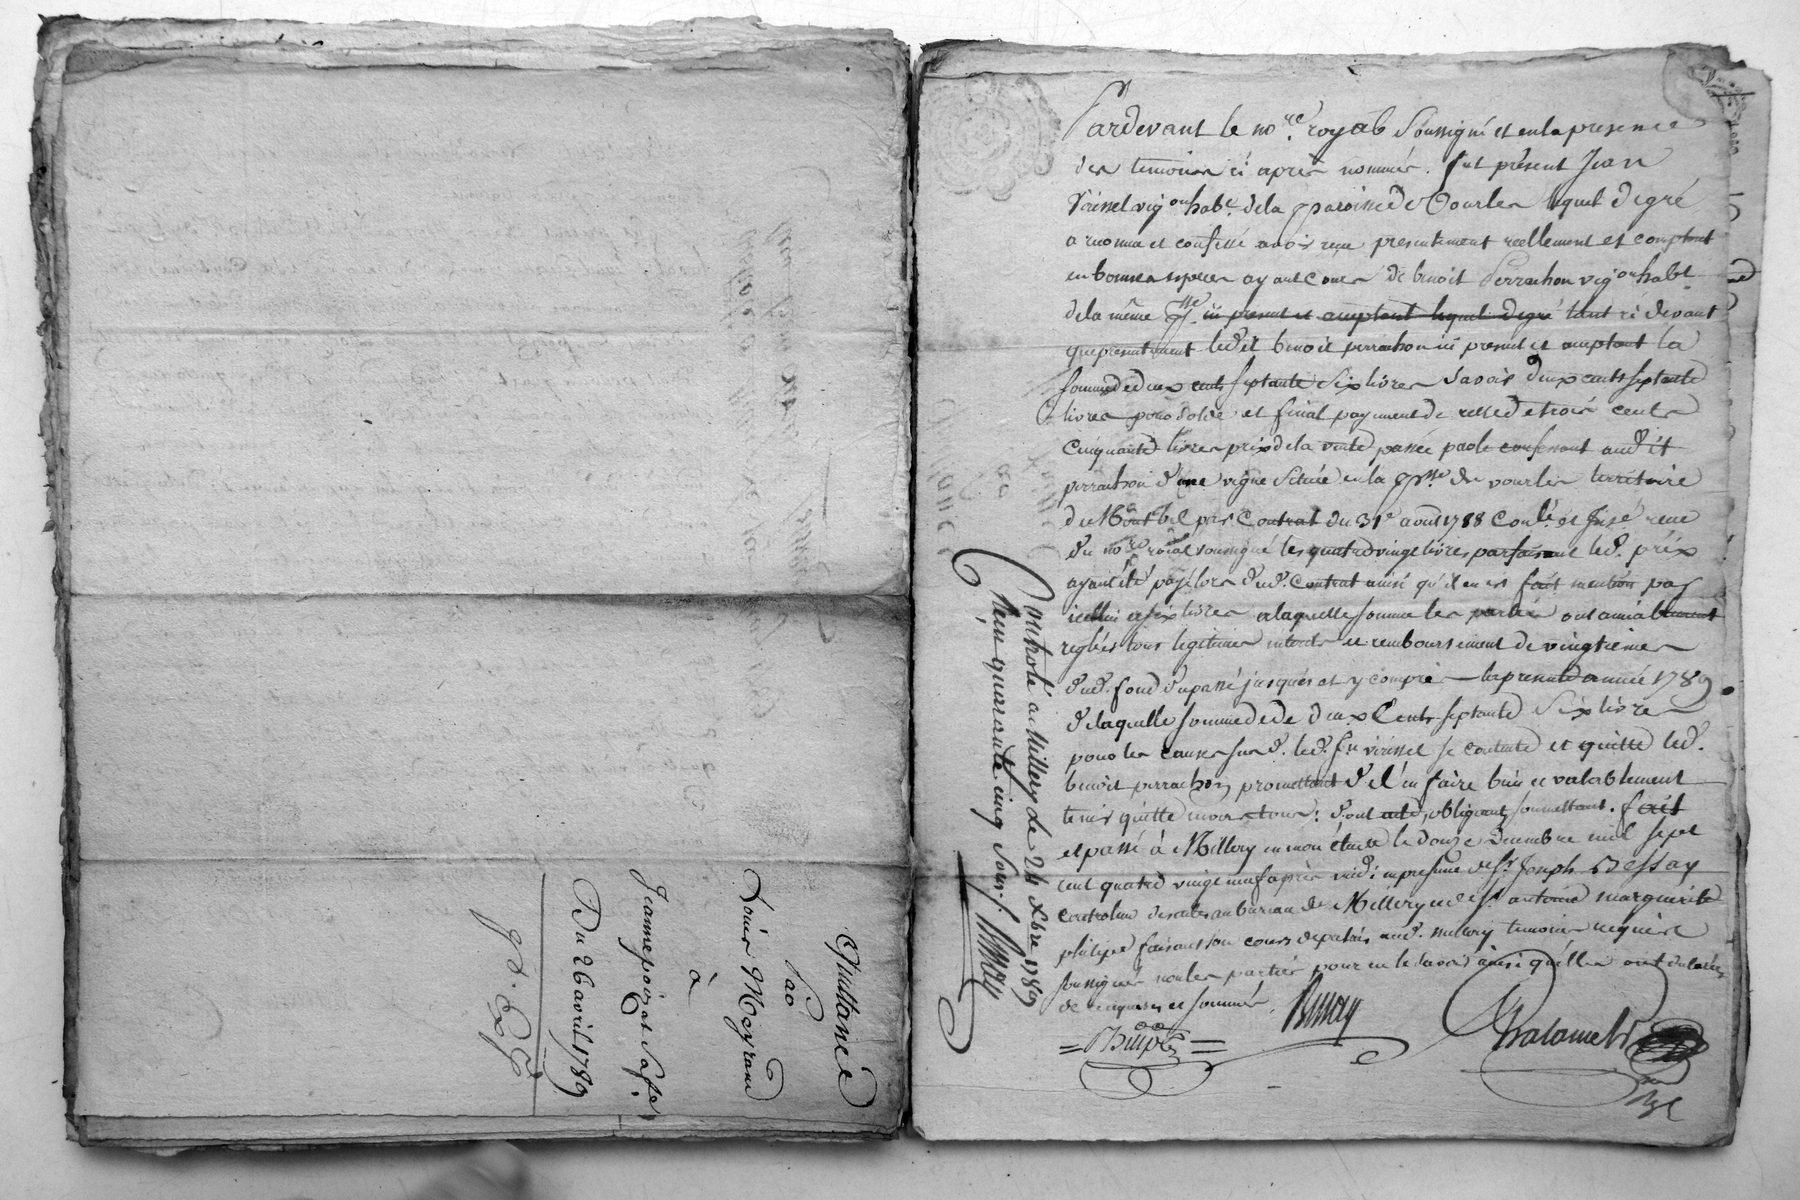 Quittance
par
Louis Meyrand
à
Jeanne poizat Sa fe
Du 26 avril 1789
Pardevant le no.re royal Soussigné et en la presence
des temoins ci après nommés. fut présent Jean
Voissel vig.on hab.t de la paroisse de Vourles lequel de gré
a reconnu et confessé avoir reçu presentement reellement et comptant
en bonnes espèces ayant cours de benoit Perrachon vig.on hab.t
de la même p.sse ici present et acceptant lequel de gré tant ci devant
que presentement led.it benoit perrachon ici present et acceptant la
somme de deux cents septante Six livres Savoir deux cents septante
livres pour solde et final payement de celle de trois cents
Cinquante livres prix de la vente passée par le confessant aud.it
perrachon d'une vigne Située en la p.sse de vourles territoire
de Montbel par Contrat du 31e août 1788 Con.lé et Insé reçu
du no.re roial soussigné les quatre vingt livres parfaisant led. prix
ayant été payé lors dud. Contrat ainsi qu'il en est fait mention par
icellui et six livres a laquelle somme les parties ont amiablement
reglées tous legitimes interets et remboursement de vingtiemes
dud. fond du passé jusques et y compris la presente année 1789.
de laquelle somme de de deux Cents septante Six livres
pour les causes susd. led. Jn voissel se contente et quitte led.
benoit perrachon promettant de l'en faire bien et valablement
tenir quitte envers tous; dont acte, obligeant, soumettant. fait
et passé à Millery en mon étude le douze decembre mil sept
cent quatre vingt neuf après midi: en presence de Sr. Joseph Bessay
Controleur des actes au bureau de Millery et de Sr. antoine marguerite
philipe faisant son cours de palais aud. millery temoins requis et
soussignés non les parties pour ne le savoir ainsi qu'elles ont declarées
de ce enquises et sommées
Controlé a Millery le 24 Xbre 1789
Reçu quarante cinq sous.